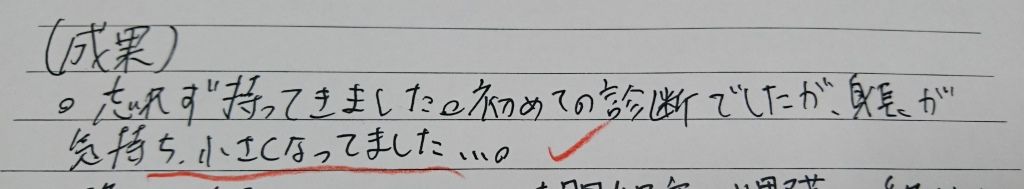 (成果)
。忘れず持ってきました。初めての診断でしたが、身長が
気持ち、小さくなってました…。